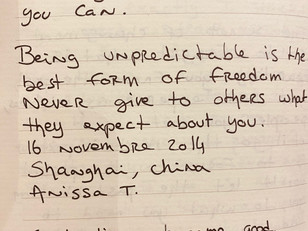 you can.
Being unpredictable is the
best form of freedom
Never give to others what
they expect about you.
16 novembre 2014
Shanghai, china
Anissa T.